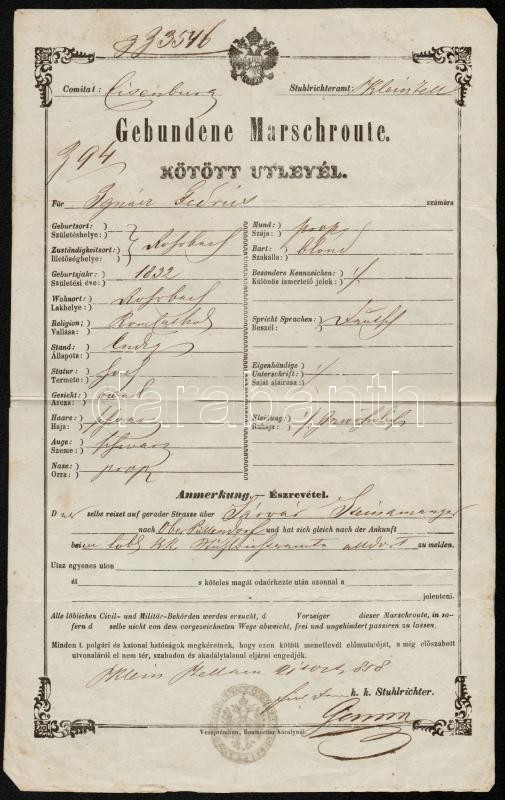 3546
Comitat: Eisenburg Stuhlrichteramt: Kleinzell
Gebundene Marschroute.
94
KÖTÖTT UTLEVÉL.
Für Ignácz számára
Geburtsort: Születéshelye:
Zuständigkeitsort: Illetőséghelye: Rohrbach
Geburtsjahr: Születési éve: 1832
Wohnort: Lakhelye: Rohrbach
Religion: Vallása:
Stand: Állapota: ledig
Statur: Termete:
Gesicht: Arcza: oval
Haare: Haja:
Auge: Szeme: schwarz
Nase: Orra: prop
Mund: Szája: prop
Bart: Szakálla: blond
Besondere Kennzeichen: Különös ismertető jelek:
Spricht Sprachen: Beszél: Deutsch
Eigenhändige Unterschrift: Saját aláírása:
Kleidung: Ruhája:
Anmerkung. Észrevétel.
D er selbe reiset auf gerader Strasse über Sárvár Steinamanger
nach Ober Pullendorf und hat sich gleich nach der Ankunft
beim löbl kk. Stuhlrichteramte alldort zu melden.
Utaz egyenes uton
át s köteles magát odaérkezte után azonnal a
jelenteni.
Alle löblichen Civil- und Militär-Behörden werden ersucht, d Vorzeiger dieser Marschroute, in so-
fern d selbe nicht von dem vorgezeichneten Wege abweicht, frei und ungehindert passiren zu lassen.
Minden t. polgári és katonai hatóságok megkéretnek, hogy ezen kötött menetlevél előmutatóját, s míg előszabott
utvonaláról el nem tér, szabadon és akadálytalanul eljárni engedjék.
Klein Zell am 21 Oct. 858
k. k. Stuhlrichter.
Veszprémben, Ramazetter Károlynál.
darabanth